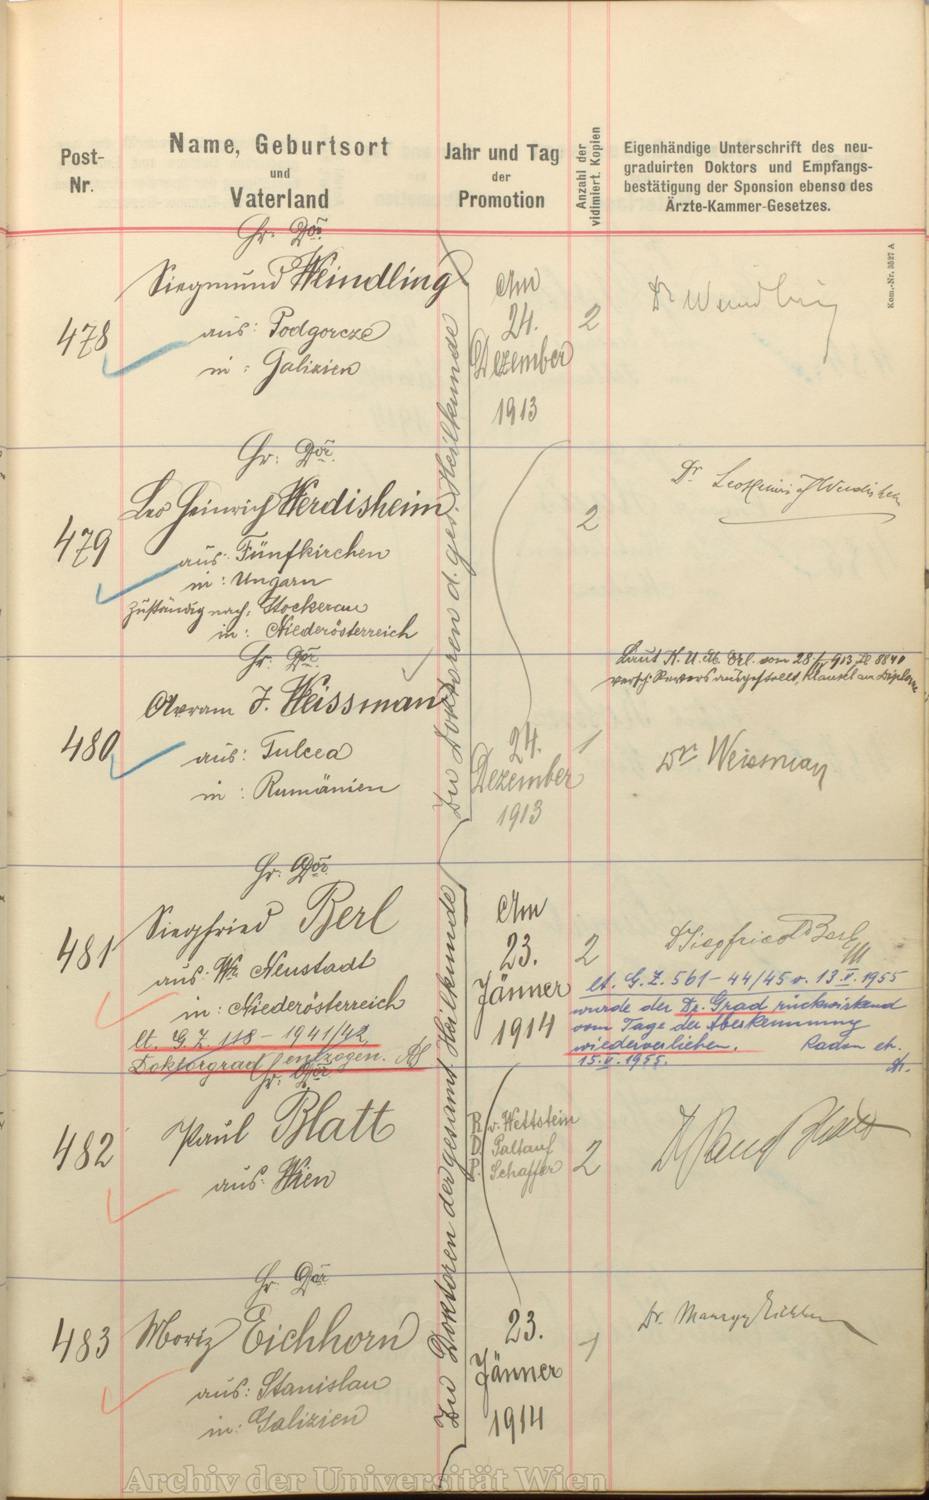 Post-Nr.
Name, Geburtsort
und
Vaterland
Jahr und Tag
der
Promotion
Anzahl der
vidimiert. Kopien
Eigenhändige Unterschrift des neu-
graduirten Doktors und Empfangs-
bestätigung der Sponsion ebenso des
Ärzte-Kammer-Gesetzes.
Kom.-Nr. 3527 A
Zu Doktoren d. ges. Heilkunde
Hr. Dor.
Siegmund Weindling
478
aus: Podgorcze
in: Galizien
Am
24.
Dezember
1913
2
Dr Weindling
Hr. Dor.
Leo Heinrich Werdisheim
479
aus: Fünfkirchen
in: Ungarn
zuständig nach: Stockerau
in: Niederösterreich
2
Dr. Leo Heinrich Werdisheim
Hr. Dor.
Avram J. Weissman
480
aus: Tulcea
in: Rumänien
24.
Dezember
1913
1
Laut K. U. M. Erl. vom 28/ 913 Zl 8840
Revers ausgestellt, Klausel am Diplome
Dr. Weissman
Zu Doktoren der gesamt. Heilkunde
Hr. Dor.
Siegfried Berl
481
aus: Wr. Neustadt
in: Niederösterreich
lt. G. Z. 118 - 1941/42
Doktorgrad entzogen.
Am
23.
Jänner
1914
2
Dr Siegfried Berl
lt. G. Z. 561-44/45 v. 13.V.1955
wurde der Dr. Grad rückwirkend
vom Tage der Aberkennung
wiederverliehen.
15.V.1955.
Hr. Dor.
482
Paul Blatt
aus: Wien
R. v. Wettstein
D. Paltauf
P. Schaffer
2
Dr Paul Blatt
Hr. Dor.
483
Moriz Eichhorn
aus: Stanislau
in: Galizien
23.
Jänner
1914
1
Dr. Eichhorn
Archiv der Universität Wien